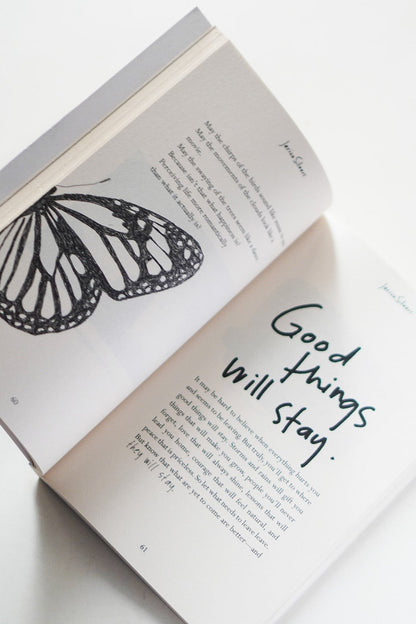 May the chirps of the birds sound like music to
May the movements of the clouds look like a
movie.
May the swaying of the trees seem like a dance.
Because isn't that what happiness is?
Perceiving life more romantically
than what it actually is?
60
Good
things
will stay.
It may be hard to believe when everything hurts you
and seems to be leaving. But truly, you'll get to where
good things will stay. Storms and rains will gift you
things that will make you grow, people you'll never
forget, love that will always shine, lessons that will
lead you home, courage that will feel natural, and
peace that is priceless. So let what needs to leave leave.
But know that what are yet to come are better—and
they will stay.
61